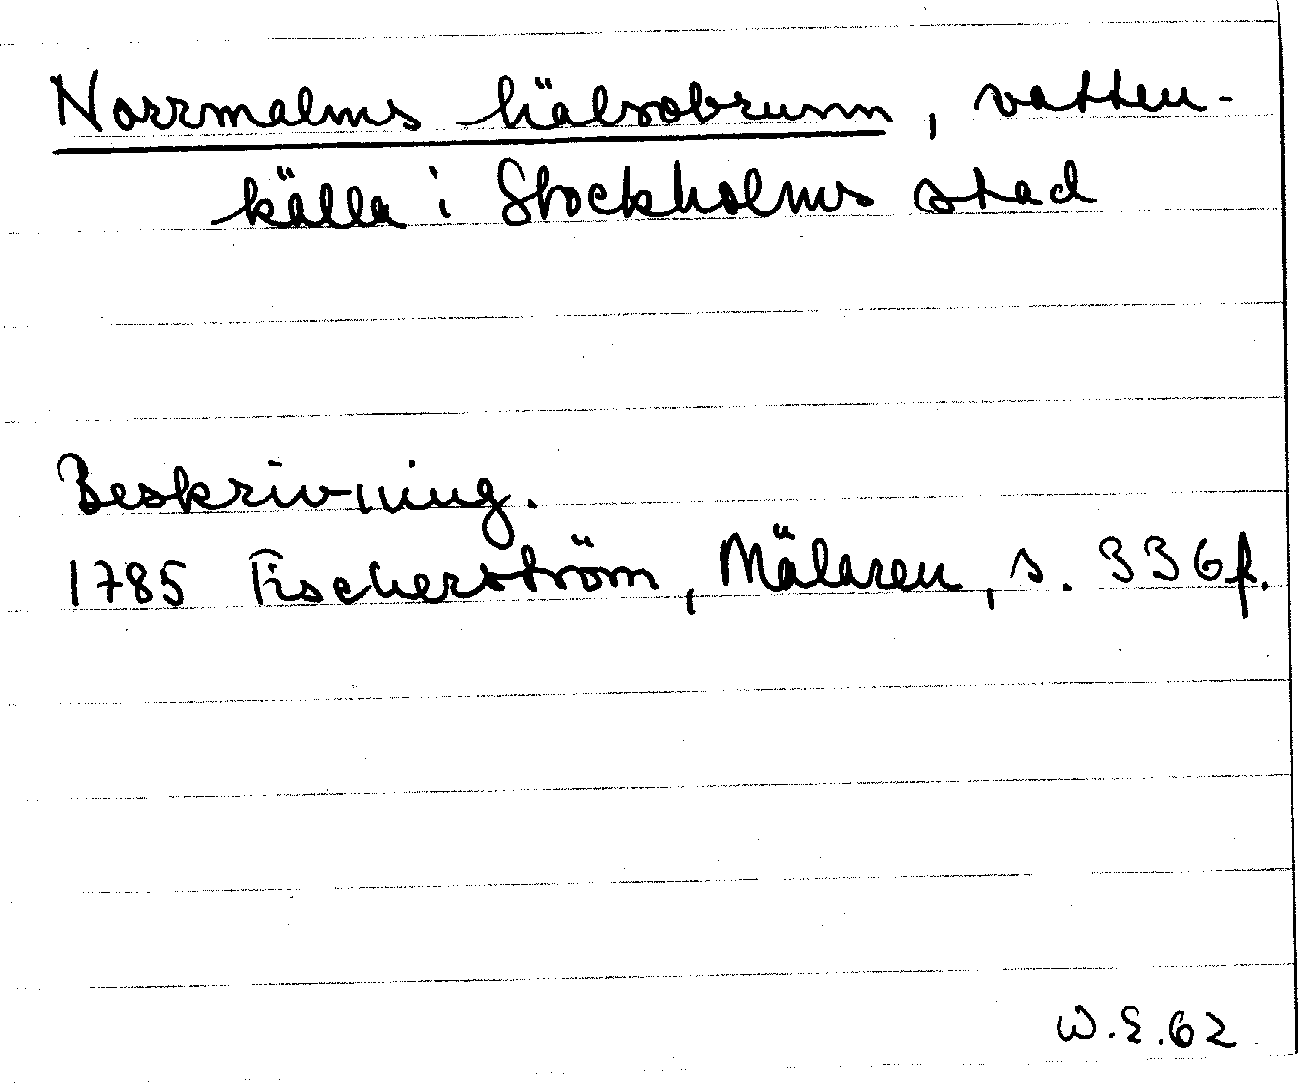 Norrmalms hälsobrunn, vatten-
källa i Stockholms stad
Beskrivning.
1785 Fischerström, Mälaren, s. 336 f.
W.E.62